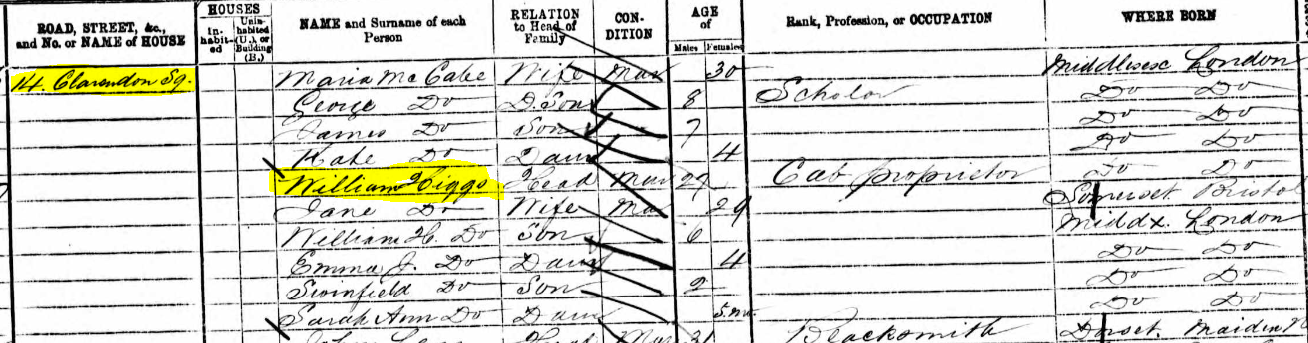 ROAD, STREET, &c., and No. or NAME of HOUSE
HOUSES
In-habit-ed
Unin-habited (U.), or Building (B.)
NAME and Surname of each Person
RELATION to Head of Family
CON-DITION
AGE of
Males
Females
Rank, Profession, or OCCUPATION
WHERE BORN
14. Clarendon Sq. Maria McCabe Wife Mar 30 Middlesex London
George Do Son 8 Scholar Do Do
James Do Son 7 Do Do
Kate Do Daur 4 Do Do
William Higgs Head Mar 29 Cab proprietor Do Do
Jane Do Wife Mar 29 Somerset Bristol
William H. Do Son 6 Middx London
Emma J. Do Daur 4 Do Do
Swinfield Do Son 2 Do Do
Sarah Ann Do Daur 5 mo Do Do
Head Mar 31 Blacksmith Dorset